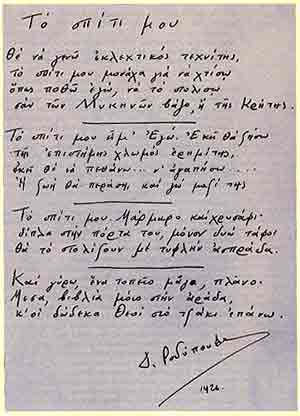 Τὸ σπίτι μου
Θὲ νὰ γενῶ ἐκλεκτικὸς τεχνίτης,
τὸ σπίτι μου μονάχα γιὰ νὰ χτίσω
ὅπως ποθῶ ἐγώ, νὰ τὸ στολίσω
σὰν τῶν Μυκηνῶν βάζο, ἢ τῆς Κρήτης.
Τὸ σπίτι μου εἶμ' Ἐγώ. Ἐκεῖ θὰ ζήσω
τῆς ἐπιστήμης χλωμὸς ἐρημίτης,
ἐκεῖ θὲ νὰ πεθάνω... ν' ἀγαπήσω.....
Ἡ ζωὴ θὰ περάσῃ, καὶ γὼ μαζί της
Τὸ σπίτι μου. Μάρμαρο καὶ χρυσάφι.
δίπλα στὴν πόρτα του, μόνον δυὸ τάφοι
θὰ τὸ στολίζουν μὲ τυφλὴν ἀσπράδα.
Καὶ γύρω, ἕνα τοπεῖο μέγα, πλάνο.
Μέσα, βιβλία μόνο στὴν ἀράδα,
κ' οἱ δώδεκα Θεοὶ στὸ τζάκι ἐπάνω.